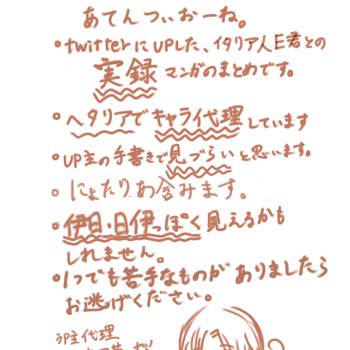 あてんつぃおーね。
•twitterにUPした、イタリア人E君との
実録マンガのまとめです。
•ヘタリアでキャライ代理しています
•UP主の手書きで見づらいと思います。
•にょたりあ含みます。
•伊日・日伊っぽく見えるかも
しれません。
•1つでも苦手なものがありましたら
お逃げください。
うp主代理